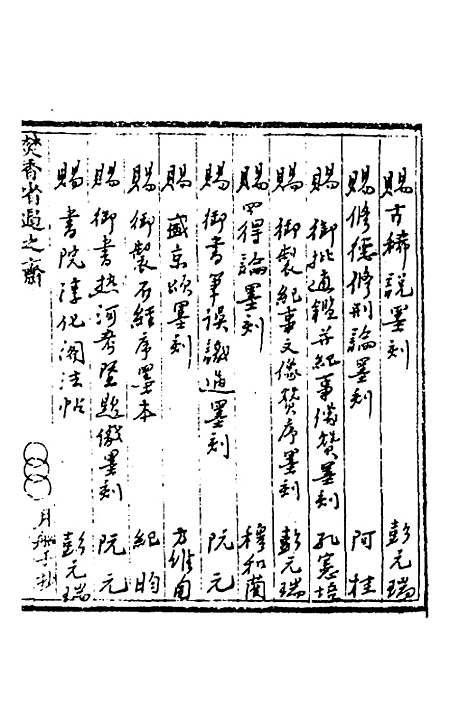 賜古稀說墨刻 彭元瑞
賜修德修刑論墨刻 阿桂
賜御批通鑑并紀事儀贊墨刻 孔憲培
賜御製紀事文儀贊序墨刻 彭元瑞
賜四得論墨刻 穆和藺
賜御書筆誤識過墨刻 阮元
賜盛京頌墨刻 方維甸
賜御製石經序墨本 紀昀
賜御書熱河考墨題徵墨刻 阮元
賜書院淳化閣法帖 彭元瑞
焚香省過之齋 月舟手